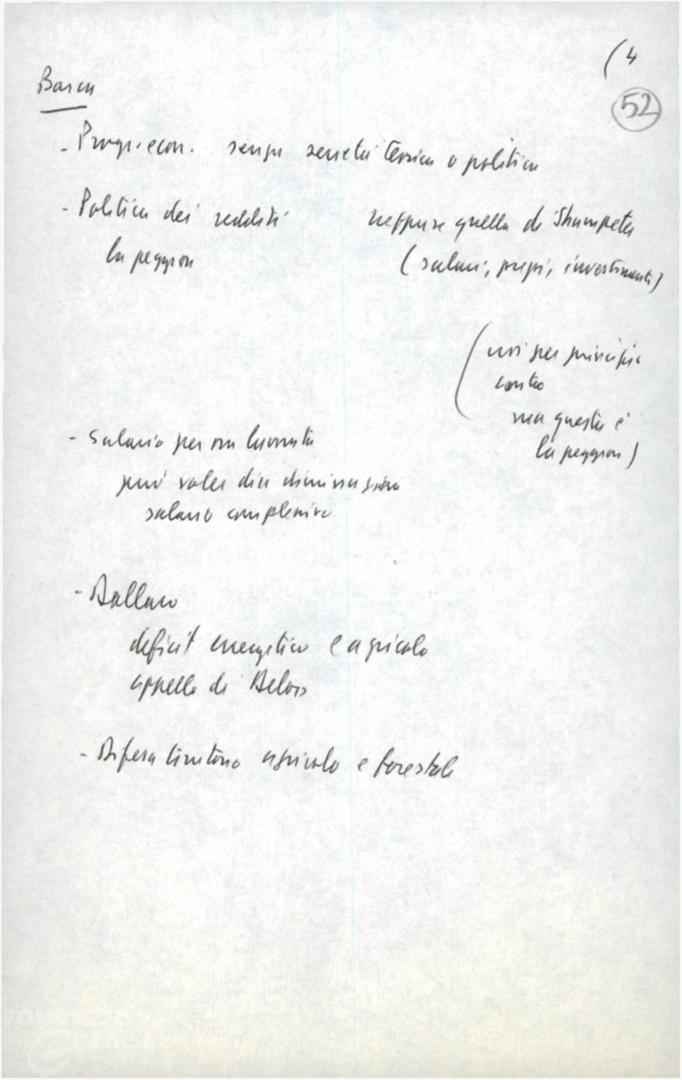 (4
52
Barca
- Progr. econ. senza serietà tecnica o politica
- Politica dei redditi neppure quella di Shumpeter
la peggiore (salari, prezzi, investimenti)
(noi per principio
contro
ma questa è
la peggiore)
- Salario per ora lavorata
può voler dire diminuzione
salario complessivo
- Ballano
deficit energetico e agricolo
appello di
- Difesa territorio agricolo e forestale